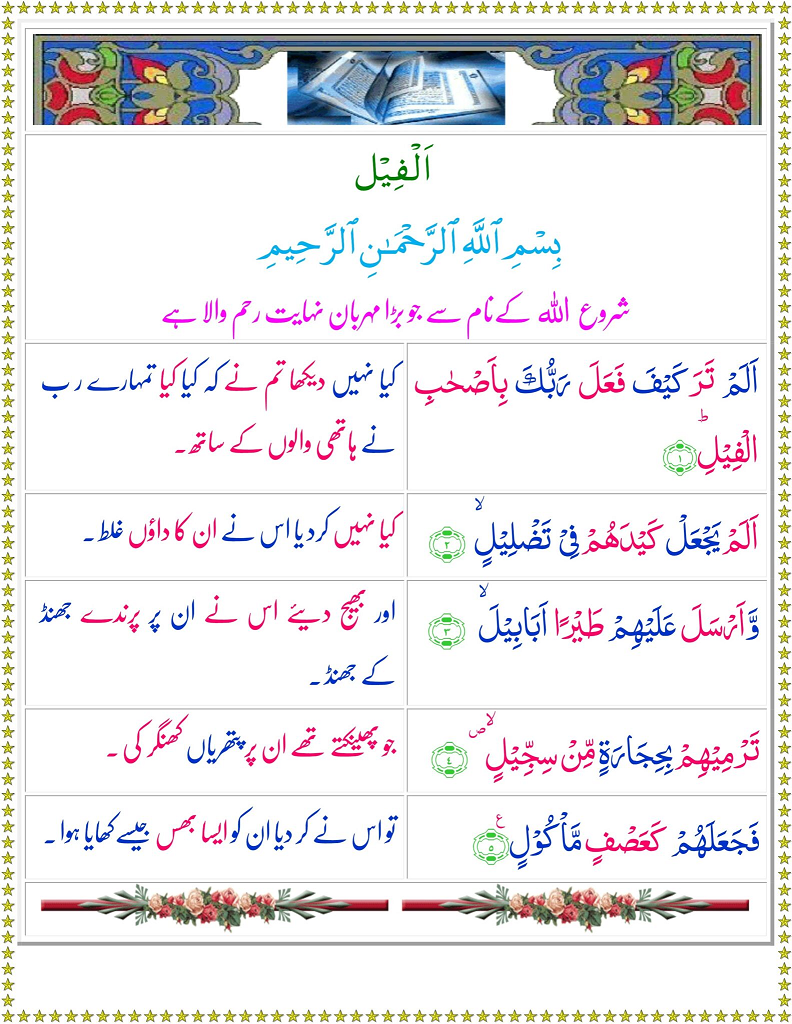 اَلْفِيْل
بِسْمِ ٱللَّهِ ٱلرَّحْمَـٰنِ ٱلرَّحِيمِ
شروع اللہ کے نام سے جو بڑا مہربان نہایت رحم والا ہے
اَلَمْ تَرَ كَيْفَ فَعَلَ رَبُّكَ بِاَصْحٰبِ
الْفِيْلِؕ ۱
کیا نہیں دیکھا تم نے کہ کیا کیا تمہارے رب
نے ہاتھی والوں کے ساتھ۔
اَلَمْ يَجْعَلْ كَيْدَهُمْ فِيْ تَضْلِيْلٍۙ ۲
کیا نہیں کر دیا اس نے ان کا داؤں غلط۔
وَّاَرْسَلَ عَلَيْهِمْ طَيْرًا اَبَابِيْلَۙ ۳
اور بھیج دیئے اس نے ان پر پرندے جھنڈ
کے جھنڈ۔
تَرْمِيْهِمْ بِحِجَارَةٍ مِّنْ سِجِّيْلٍۙ ص ٤
جو پھینکتے تھے ان پر پتھریاں کھنگر کی۔
فَجَعَلَهُمْ كَعَصْفٍ مَّاْكُوْلٍ ع ٥
تو اس نے کر دیا ان کو ایسا بھس جیسے کھایا ہوا۔